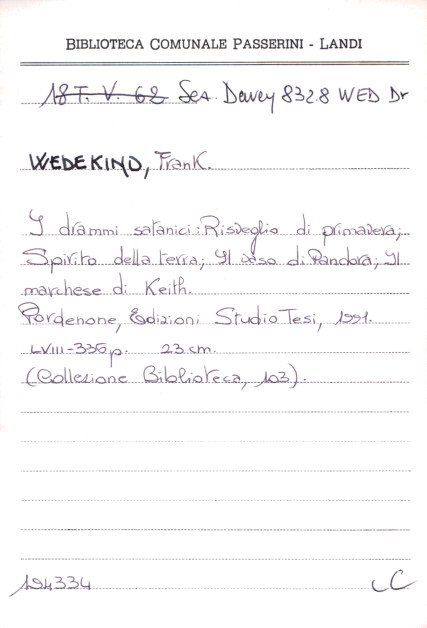 BIBLIOTECA COMUNALE PASSERINI - LANDI
18 T. V. 62 Sez. Dewey 832.8 WED Dr
WEDEKIND, Frank.
I drammi satanici: Risveglio di primavera;
Spirito della terra; Il vaso di Pandora; Il
marchese di Keith.
Pordenone, Edizioni Studio Tesi, 1991.
LVIII-335 p. 23 cm.
(Collezione Biblioteca, 103).
194334 C